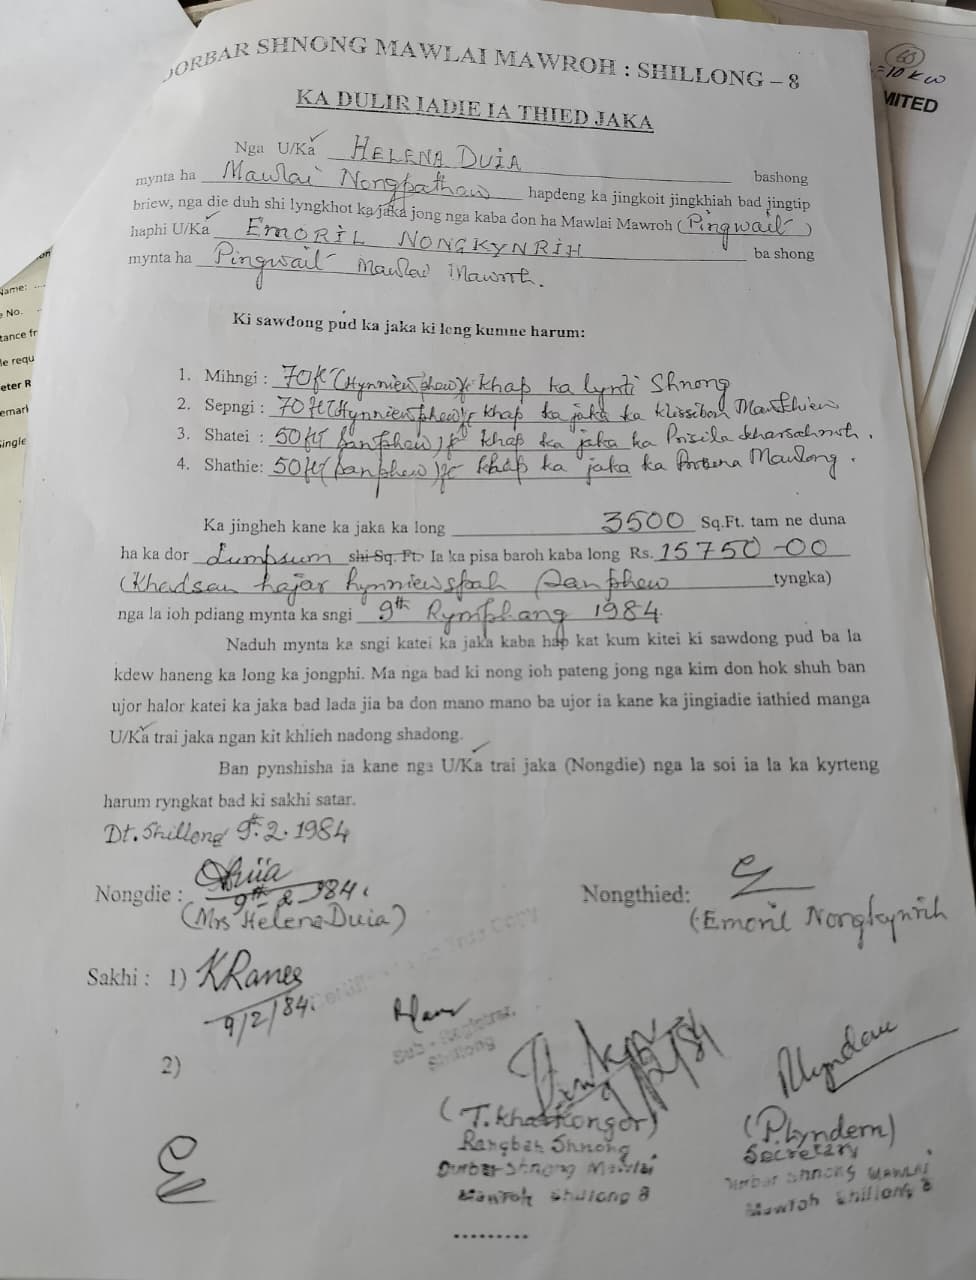 DORBAR SHNONG MAWLAI MAWROH : SHILLONG – 8
KA DULIR IADIE IA THIED JAKA
Nga U/Ka HELENA DUIA bashong
mynta ha Mawlai Nongpathaw hapdeng ka jingkoit jingkhiah bad jingtip
briew, nga die duh shi lyngkhot ka jaka jong nga kaba don ha Mawlai Mawroh (Pingwait)
haphi U/Ka EMORIL NONGKYNRIH ba shong
mynta ha Pingwait Mawlai Mawroh.
Ki sawdong pud ka jaka ki long kumne harum:
1. Mihngi : 70ft (Hynniewphew)ft khap ka lynti Shnong
2. Sepngi : 70ft (Hynniewphew)ft khap ka jaka ka
3. Shatei : 50ft (sanphew)ft khap ka jaka ka Prisila
4. Shathie: 50ft (sanphew)ft khap ka jaka ka Mawlong.
Ka jingheh kane ka jaka ka long 3500 Sq.Ft. tam ne duna
ha ka dor Lumpsum shi Sq. Ft. Ia ka pisa baroh kaba long Rs. 15750-00
(Khadsan hajar hynniewspah sanphew tyngka)
nga la ioh pdiang mynta ka sngi 9th Rymphang 1984.
Naduh mynta ka sngi katei ka jaka kaba hap kat kum kitei ki sawdong pud ba la
kdew haneng ka long ka jongphi. Ma nga bad ki nong ioh pateng jong nga kim don hok shuh ban
ujor halor katei ka jaka bad lada jia ba don mano mano ba ujor ia kane ka jingiadie iathied manga
U/Ka trai jaka ngan kit khlieh nadong shadong.
Ban pynshisha ia kane nga U/Ka trai jaka (Nongdie) nga la soi ia la ka kyrteng
harum ryngkat bad ki sakhi satar.
Dt. Shillong 9th.2.1984
Nongdie : Duia
9th 2 1984.
(Mrs Helena Duia)
Nongthied:
(Emoril Nongkynrih
Sakhi : 1) KRanee
9/2/84.
Sub-Registrar,
Shillong
2)
9/2/84
(T. Kharkongor)
Rangbah Shnong
Durbar Shnong Mawlai
Mawroh Shillong 8
(P.Lyndem)
Secretary
Durbar Shnong Mawlai
Mawroh Shillong 8
68
=10 KW
MITED
Name:
No.
tance fr
le requ
eter R
emark
Single